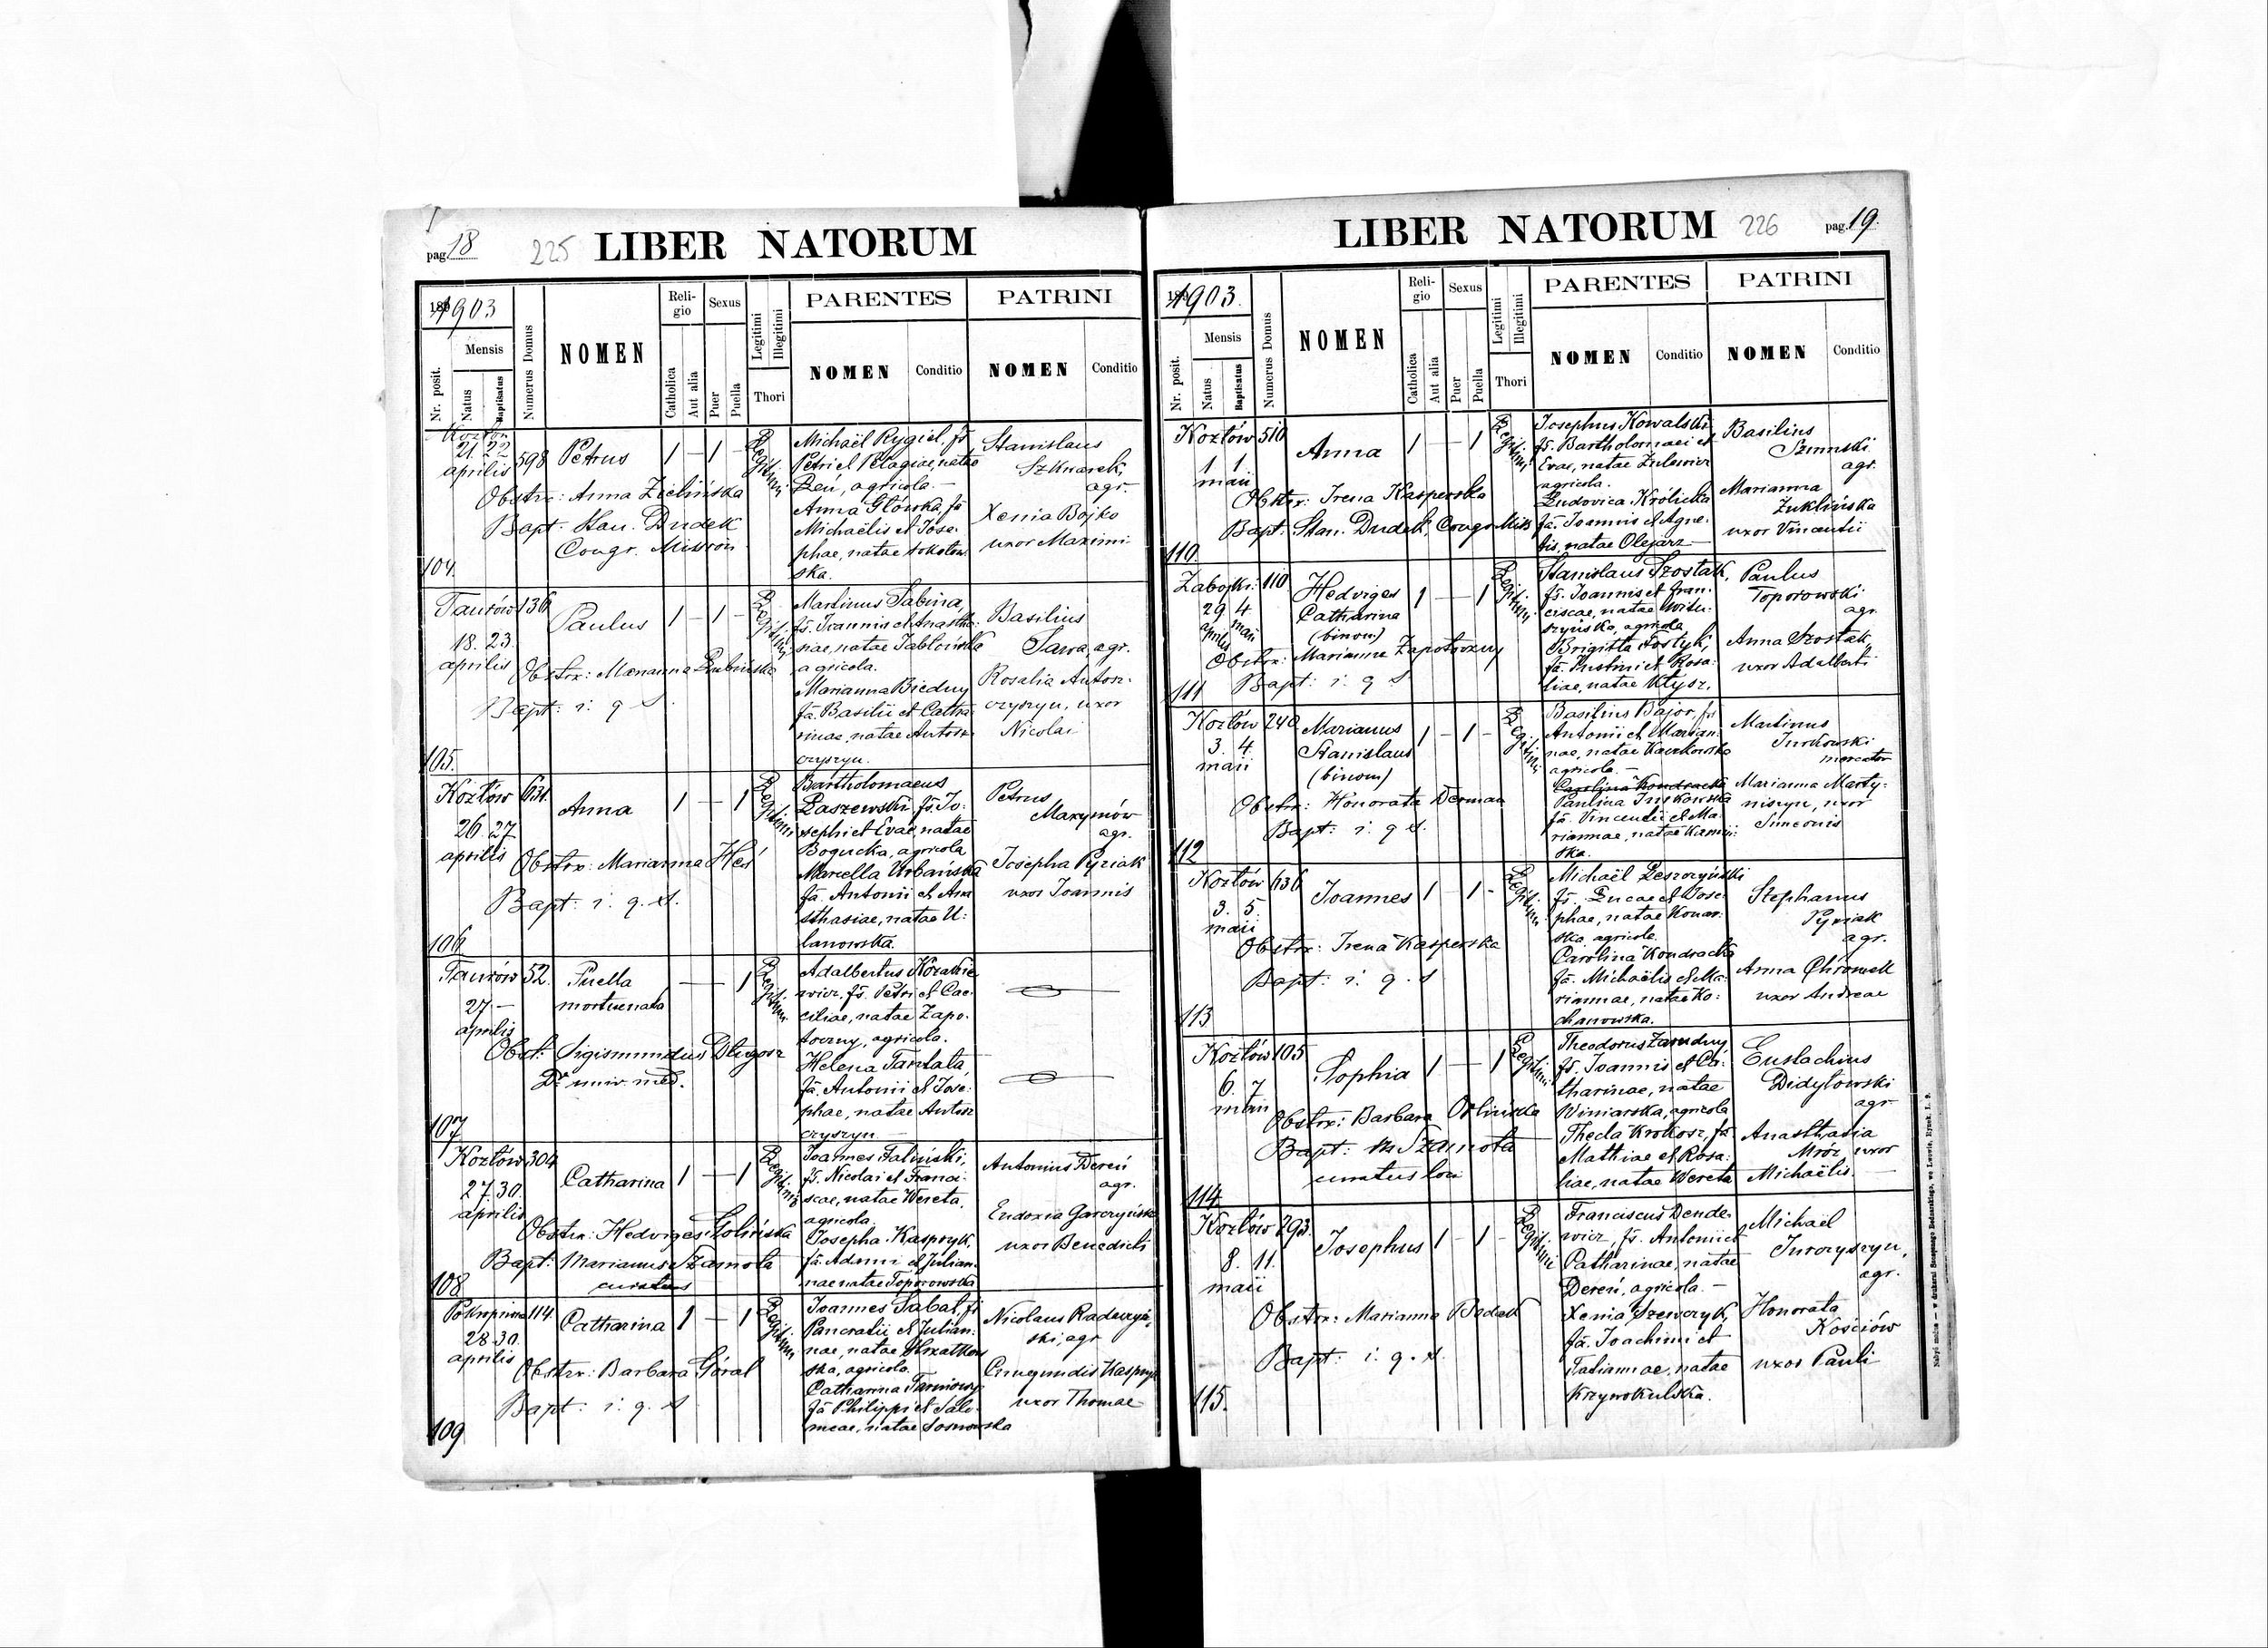 pag. 18
225
LIBER NATORUM
1903
Nr. posit.
Mensis
Natus
Baptisatus
Numerus Domus
NOMEN
Reli-
gio
Catholica
Aut alia
Sexus
Puer
Puella
Legitimi
Illegitimi
Thori
PARENTES
NOMEN
Conditio
PATRINI
NOMEN
Conditio
Kozłów
21. 22
aprilis
598
Petrus
1 - 1
Legitimi
Michaël Rygiel, fs.
Petri et Pelagiae, natae
Leń, agricola. -
Anna Głowska, fa
Michaëlis et Jose-
phae, natae Sokołow
ska.
Stanislaus
agr.
Xenia Bojko
uxor Maximi
Obstrx: Anna Zielińska
Bapt: Stan. Dudek
Congr. Mission
104.
Taurów 136
18. 23.
aprilis
Paulus
1 - 1 -
Legitimi
Martinus Sabina,
fs. Joannis et Anasta-
siae, natae Jabłońska
agricola.
Marianna Biedny
fa. Basilii et Catha
rinae, natae Antosz
czyszyn.
Basilius
Sawa, agr.
Rosalia Antosz-
czyszyn, uxor
Nicolai
Obstrx: Marianna
Bapt: i. q. s.
105.
Kozłów 631.
26. 27
aprilis
Anna
1 - 1
Legitimi
Bartholomaeus
Łaszewski, fs. Jo-
sephi et Evae, natae
Bogucka, agricola
Marcella Urbańska
fa. Antonii et Ana
sthasiae, natae U-
lanowska.
Petrus
Maxymów
agr.
Josepha Pyziak
uxor Joannis
Obstrx: Marianna
Bapt: i. q. s.
106
Taurów 52.
27 -
aprilis
Puella
mortuenata
- 1
Legitimi
Adalbertus
wicz, fs. Petri et Cae-
ciliae, natae Zapo-
toczny, agricola.
Helena Tantala,
fa. Antonii et Jose-
phae, natae Antosz
czyszyn. -
Obst: Sigismundus Długosz
Dr univ. med.
107
Kozłów 304
27. 30.
aprilis
Catharina
1 - 1
Legitimi
Joannes Faliński,
fs. Nicolai et Franci-
scae, natae Wereta,
agricola
Josepha Kaspryk,
fa. Adami et Julian-
nae natae Toporowska
Antonius Dereń
agr.
Eudoxia Garczyńska
uxor Benedicti
Obstrx: Hedviges
Bapt: Marianus Szamota
curatus
108
Pokropiwna 114.
28. 30.
aprilis
Catharina
1 - 1
Legitimi
Joannes Sabat, fs
Pancratii et Julian-
nae, natae
ska, agricola.
Catharina
fa Philippi et Salo-
meae, natae Sosnowska
Nicolaus
ski, agr
Cunegundis Kaspryk
uxor Thomae
Obstrx: Barbara Góral
Bapt: i. q. s
109
LIBER NATORUM
226
pag. 19.
1903.
Nr. posit.
Mensis
Natus
Baptisatus
Numerus Domus
NOMEN
Reli-
gio
Catholica
Aut alia
Sexus
Puer
Puella
Legitimi
Illegitimi
Thori
PARENTES
NOMEN
Conditio
PATRINI
NOMEN
Conditio
Kozłów 510
1 1
maii
Anna
1 - 1
Legitimi
Josephus Kowalski
fs. Bartholomaei et
Evae, natae Zulewicz
agricola.
Ludovica Królicka
fa. Joannis et Agne-
tis, natae Olejarz -
Basilius
agr.
Marianna
Żuklińska
uxor Vincentii
Obstrx: Irena Kasperska
Bapt: Stan. Dudek, Congr. Miss
110.
Zabojki: 110
29 4
aprilis maii
Hedviges
Catharina
(binom)
1 - 1
Legitimi
Stanislaus Szostak,
fs. Joannis et Fran-
ciscae, natae Witu-
szyńska, agricola
Brigitta Fostyk,
fa. Justini et Rosa-
liae, natae
Paulus
Toporowski
agr.
Anna Szostak,
uxor Adalberti
Obstrx: Marianna Zapotoczny
Bapt: i. q s
111
Kozłów 240
3. 4.
maii
Marianus
Stanislaus
(binom)
1 - 1 -
Legitimi
Basilius Bajor, fs
Antonii et Marian-
nae, natae Kaczkowska
agricola. -
Carolina Kondracka
Paulina Jurkowska
fa. Vincentii et Ma-
riannae, natae Kamiń-
ska.
Martinus
Jurkowski
mercator
Marianna Marty-
niszyn, uxor
Simeonis
Obstrx: Honorata Derman
Bapt: i. q s.
112
Kozłów 636
3. 5.
maii
Joannes
1 - 1 -
Legitimi
Michaël Leszczyński
fs. Lucae et Jose-
phae, natae Konar-
ska, agricola.
Carolina Kondracka
fa. Michaëlis et Ma-
riannae, natae Ko-
chanowska.
Stephanus
Pyziak
agr.
Anna Chromek
uxor Andreae
Obstrx: Irena Kasperska
Bapt: i. q. s
113
Kozłów 105
6. 7.
maii
Sophia
1 - 1
Legitimi
Theodorus Zarudny
fs. Joannis et Ca-
tharinae, natae
Winiarska, agricola
Thecla Krokosz, fa
Mathiae et Rosa-
liae, natae Wereta
Eustachius
Didyłowski
agr
Anasthasia
Mróz, uxor
Michaëlis. -
Obstrx: Barbara Orlińska
Bapt: M Szamota
curatus loci
114.
Kozłów 293.
8. 11.
maii
Josephus
1 - 1 -
Legitimi
Franciscus Dende-
wicz, fs. Antonii et
Catharinae, natae
Dereń, agricola. -
Xenia Szewczyk,
fa. Joachimi et
Tatiannae, natae
Krzywokulska.
Michaël
Jurczyszyn,
agr.
Honorata
Kościów
uxor Pauli
Obstrx: Marianna Bodak
Bapt: i. q. s.
115.